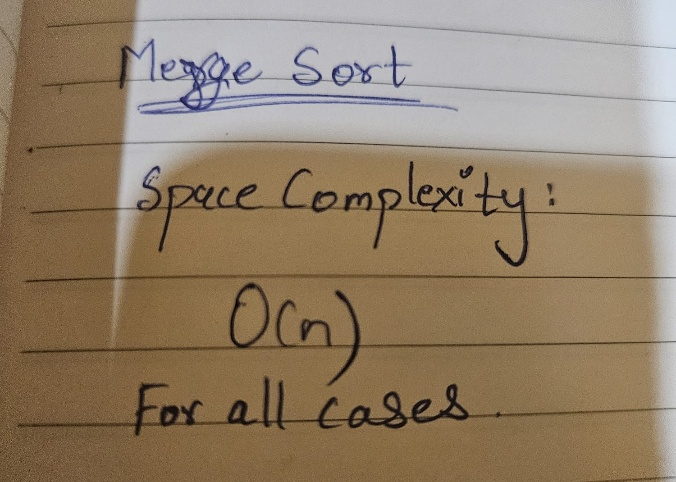 Merge Sort
Space Complexity:
O(n)
For all cases.